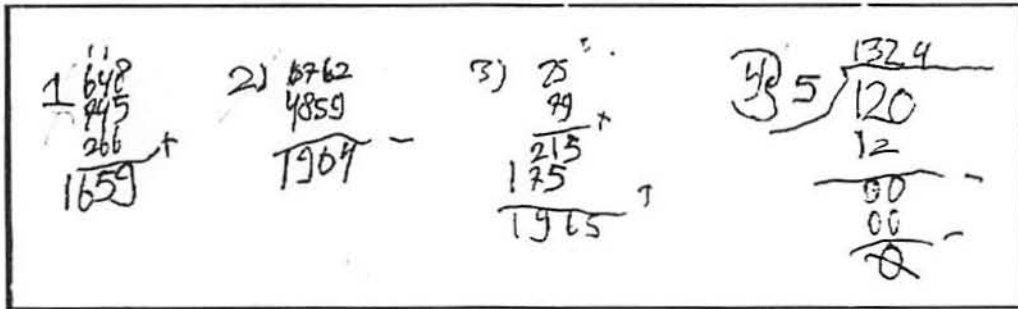 1 648
745
266 +
1659
2) 6762
4859
1904 -
3) 25
79 x
215
175
1965
4) 5 1324
120
12
00 -
00 -
0